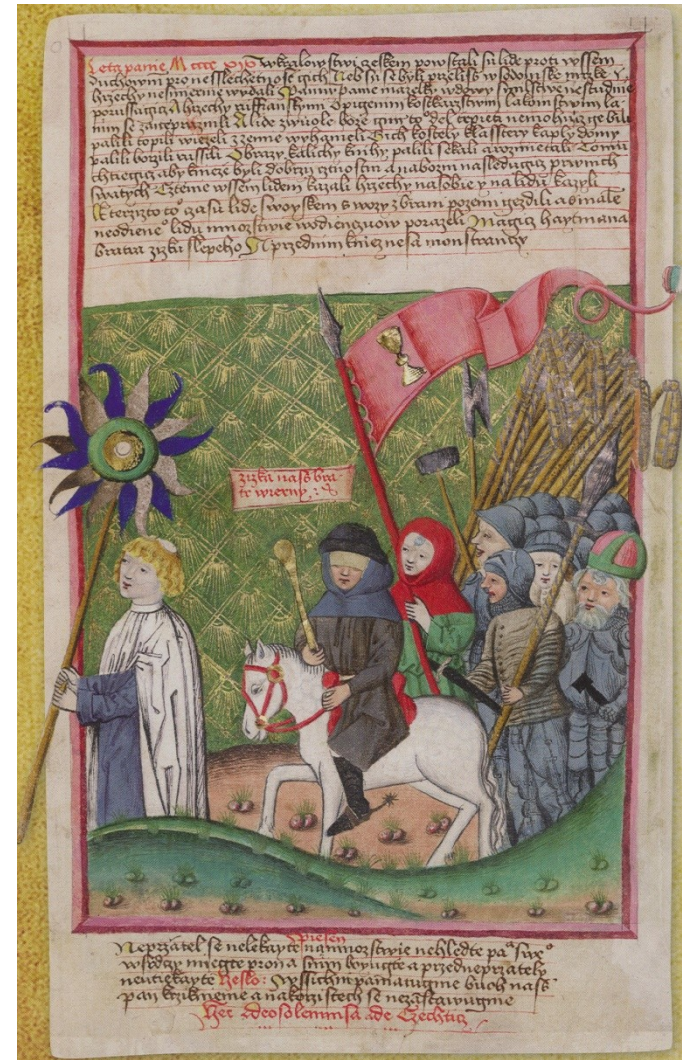 Leta panie M cccc xix w kralowstwi czeskem powstali su lide proti wssem
duchowním pro nesslechetnost gich Neb su se byli przeliss w sodomske mrzke y
hrzechy nesmierne wydali Panny panie mazelky wdowy
porussugicz A hrzechy ruffianskymi lakomstwim
A lide z wuole bozie gim to del trpieti nemohucze ge bili
palili topili wiezeli z zemie wyhanieli Gich kostely klasstery kaply domy
palili borzili russili Obrazy kalichy knihy palili sekali a rozmetali Tomu
chtiegicz aby kniezie byli dobrzi cztnostni a nabozni nasledugicz prwnich
swatych Cztenie wssem lidem kazali hrzechy na sobie y na lidu kazyli
Kterzizto toho czasu lide s woyskem s wozy z bran po zemi gezdili a s male
neodieneho lidu mnozstwie w odieni porazeli Magicz haytmana
bratra zizku slepeho A przed nim kniez nesa monstranczy
zizka nass bra-
tr wierny
Piesen
Neprzatel se nelekayte na mnozstwie nehledte pana sweho
w srdczy mieyte pro nea s nim boyugte a przed neprzately
neutiekayte Heslo: Wssichni pamatugme buoh nass
pan krzikniemee a na korzistech se nezastawugme